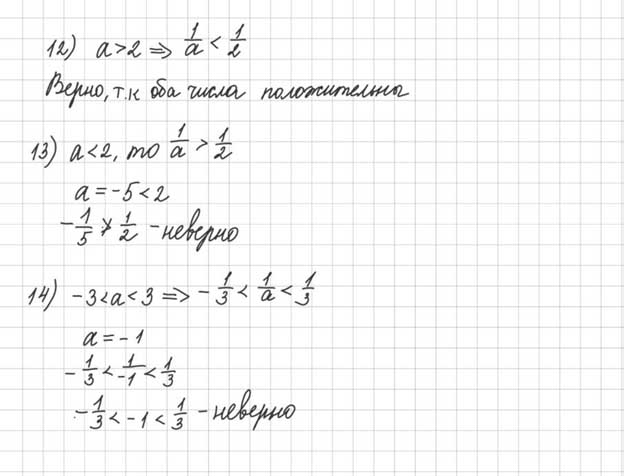 12) a>2 ⇒ 1/a < 1/2
Верно, т.к оба числа положительны
13) a<2, то 1/a > 1/2
a = -5 < 2
-1/5 ≯ 1/2 - неверно
14) -3<a<3 ⇒ -1/3 < 1/a < 1/3
a = -1
-1/3 < 1/-1 < 1/3
-1/3 < -1 < 1/3 - неверно